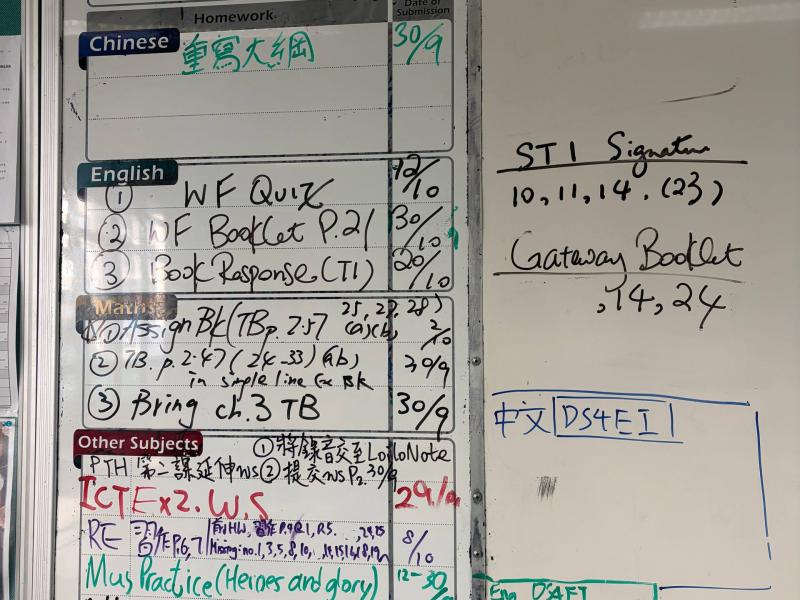 Homework Date of Submission
Chinese 重寫大綱 30/9
English
① WF Quiz 12/10
② WF Booklet P.21 30/10
③ Book Response (T1) 20/10
Maths
① Assign Bk (TB p. 2.57 25, 27, 28) (a)(b) 2/10
② TB. p. 2.47 (24-33) (ab) 30/9
in single line Ex Bk
③ Bring ch.3 TB 30/9
Other Subjects ① 將錄音交至LoiloNote
PTH 第二課延伸WS ② 提交WS P2. 30/9
ICT Ex 2. W.S 29/9
RE 習作P.6,7 8/10
Missing: no. 1, 3, 5, 8, 10,
Mus Practice (Heroes and glory) 12-30/9
ST1 Signature
10, 11, 14, (23)
Gateway Booklet
, 14, 24
中文 DS4E1
Eng DSAF1